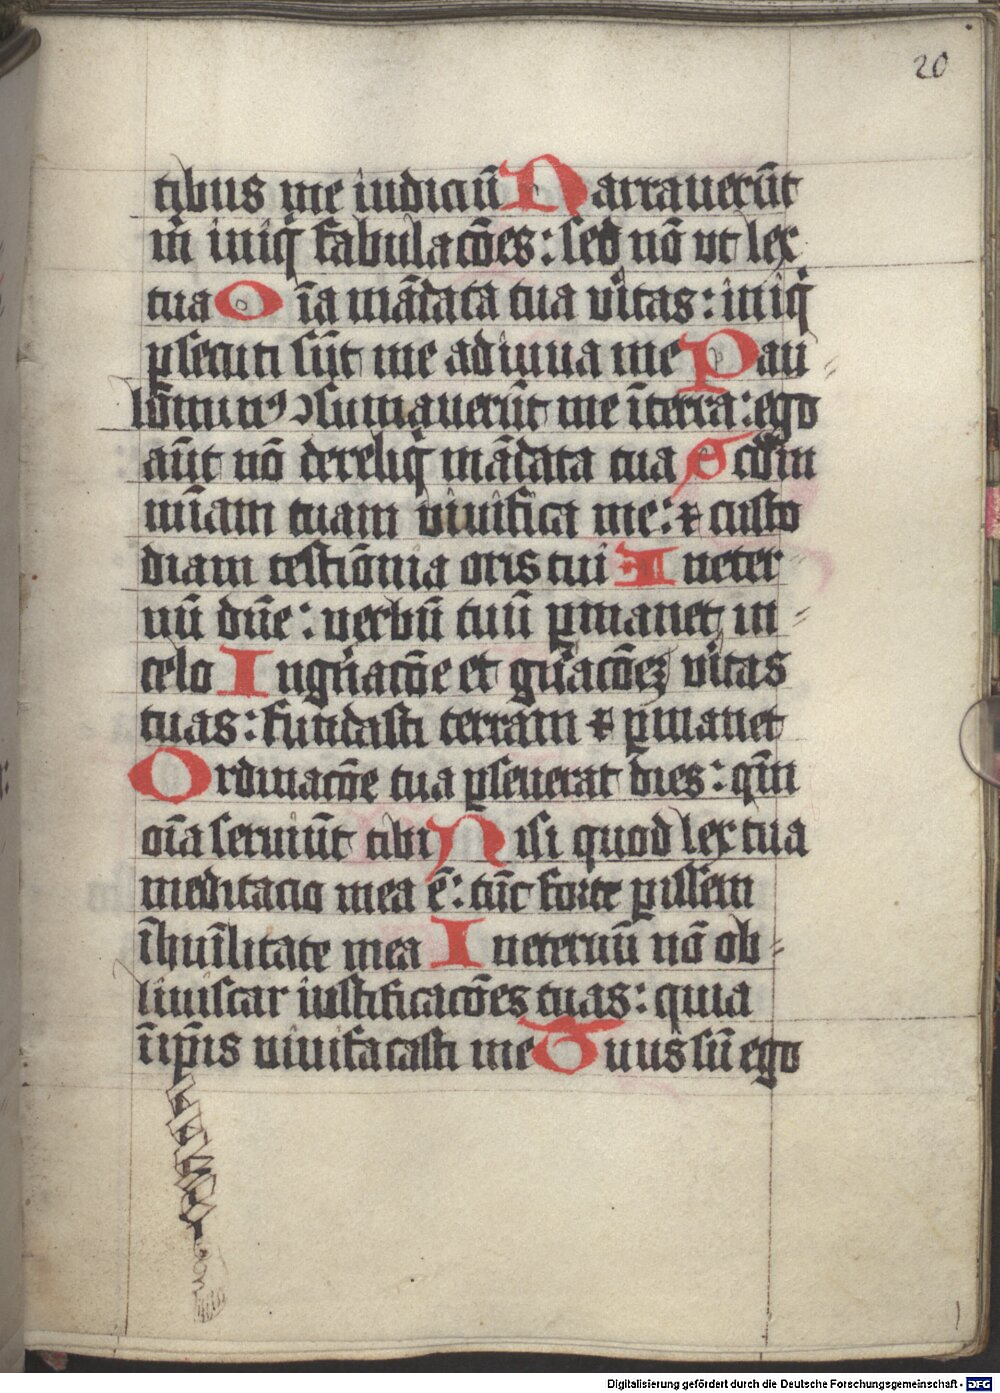 20
tibus me iudiciū Narrauerūt
m̄ iniq̇ fabulacōes: sed nō vt lex
tua Oīa mādata tua vītas: iniq̇
ꝑsecuti sūt me adiuua me Pau
lōminꝰ ↄsumauerūt me ī terra: ego
aūt nō dereliq̇ mādata tua Scdm
mīam tuam viuifica me: ⁊ custo
diam testiōnia oris tui In eter
nū dn̄e: verbū tuū ꝑmanet in
celo In gn̄acōe et gn̄acōeꝫ vītas
tuas: fundasti terram ⁊ ꝑmanet
Ordinacōe tua ꝑseuerat dies: qm̄
oīa seruiūt tibi Nisi quod lex tua
meditacio mea ē: tūc forte ꝑissem
ī huīlitate mea In eternū nō ob
liuiscar iustificacōes tuas: quia
ī ip̄is viuificasti me Tuus sū ego
Digitalisierung gefördert durch die Deutsche Forschungsgemeinschaft - DFG